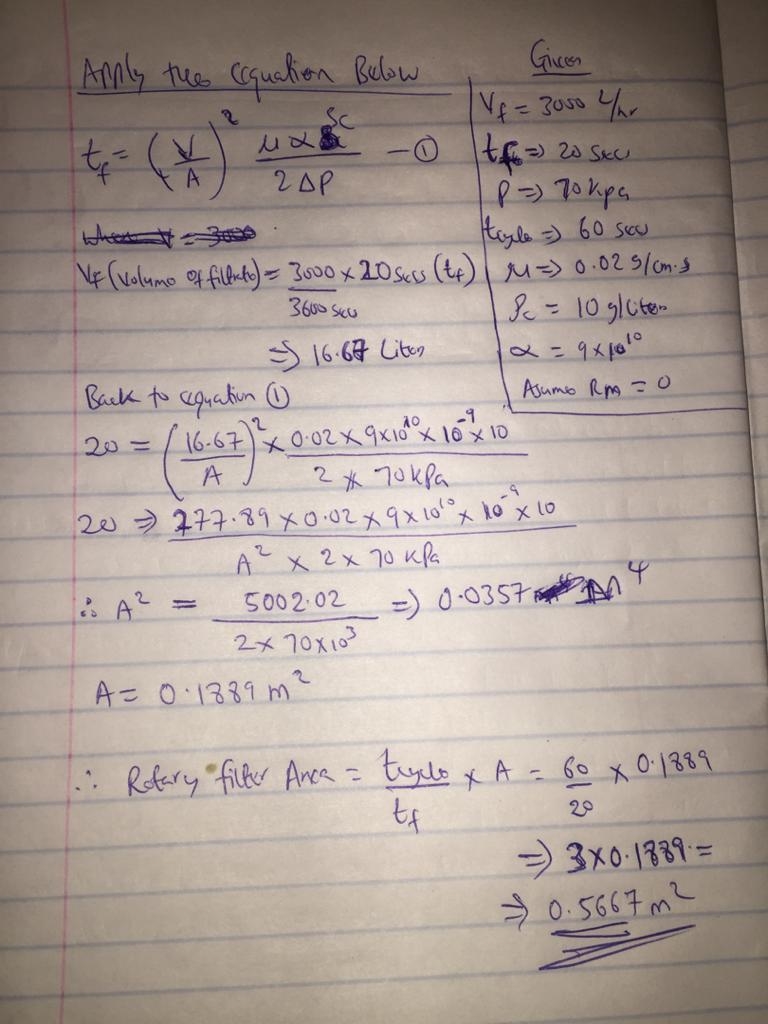 Apply the equation Below
t_f = (V/A)² μ α ρc / 2 ΔP — ①
where V = 3000
V_f (volume of filtrate) = 3000/3600 sec × 20 secs (t_f)
⇒ 16.67 Liters
Back to equation ①
20 = (16.67/A)² × 0.02 × 9×10¹⁰ × 10⁻⁹ × 10 / 2 × 70kPa
20 ⇒ 277.89 × 0.02 × 9×10¹⁰ × 10⁻⁹ × 10 / A² × 2 × 70 kPa
∴ A² = 5002.02 / 2 × 70×10³ ⇒ 0.0357 m⁴
A = 0.1889 m²
∴ Rotary filter Area = tcycle/t_f × A = 60/20 × 0.1889
⇒ 3×0.1889 =
⇒ 0.5667 m²
Given
V_f = 3000 L/hr
t_f ⇒ 20 sec
P ⇒ 70 kpa
tcycle ⇒ 60 sec
μ ⇒ 0.02 g/cm·s
ρc = 10 g/Liter
α = 9×10¹⁰
Asume Rm = 0